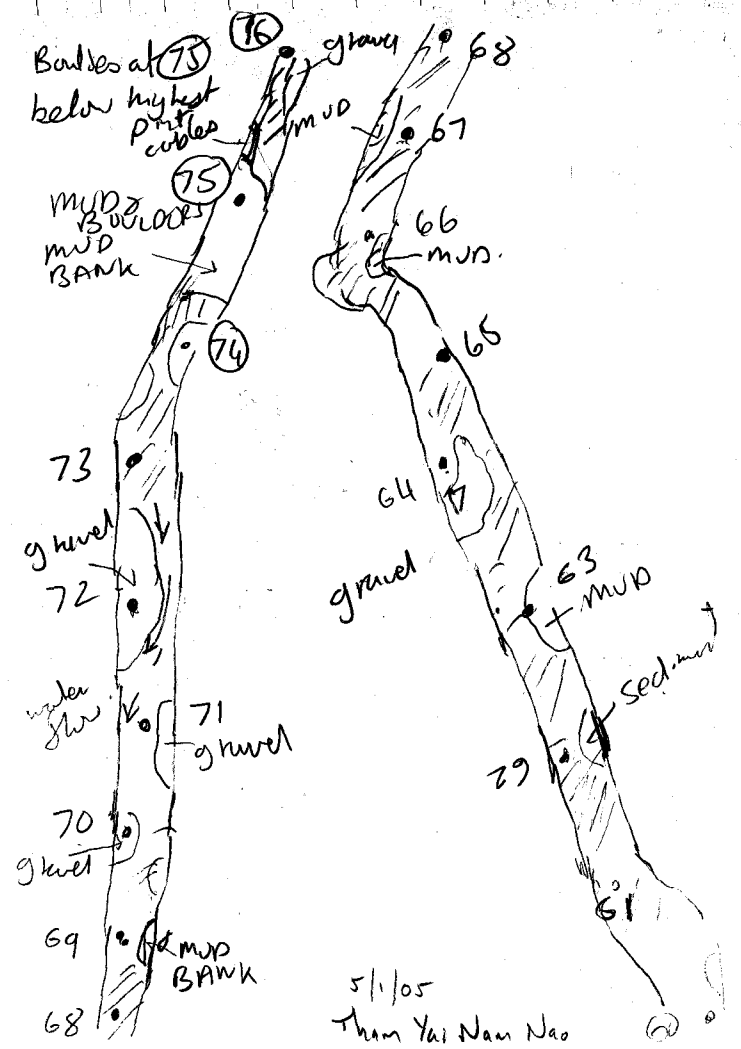 76
Boulders at 75
below highest
point
cobbles
gravel
75
MUD &
BOULDORS
MUD
BANK
74
73
gravel
72
water
flow
71
gravel
70
gravel
69
MUD
BANK
68
68
MUD
67
66
MUD.
65
64
gravel
63
MUD
Sediment
62
61
60
5/1/05
Tham Yai Nam Nao